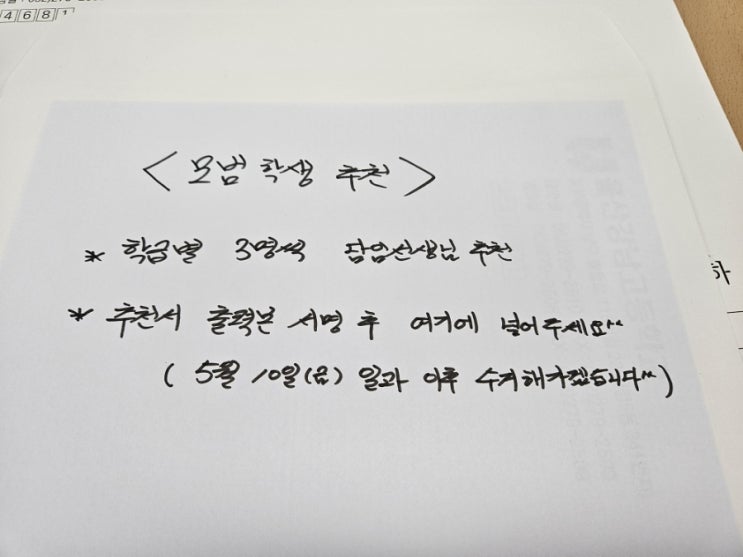 4681
<모범 학생 추천>
* 학급별 3명씩 담임선생님 추천
* 추천서 출력본 서명 후 여기에 넣어주세요^^
( 5월 10일(금) 일과 이후 수거해가겠습니다^^)
하